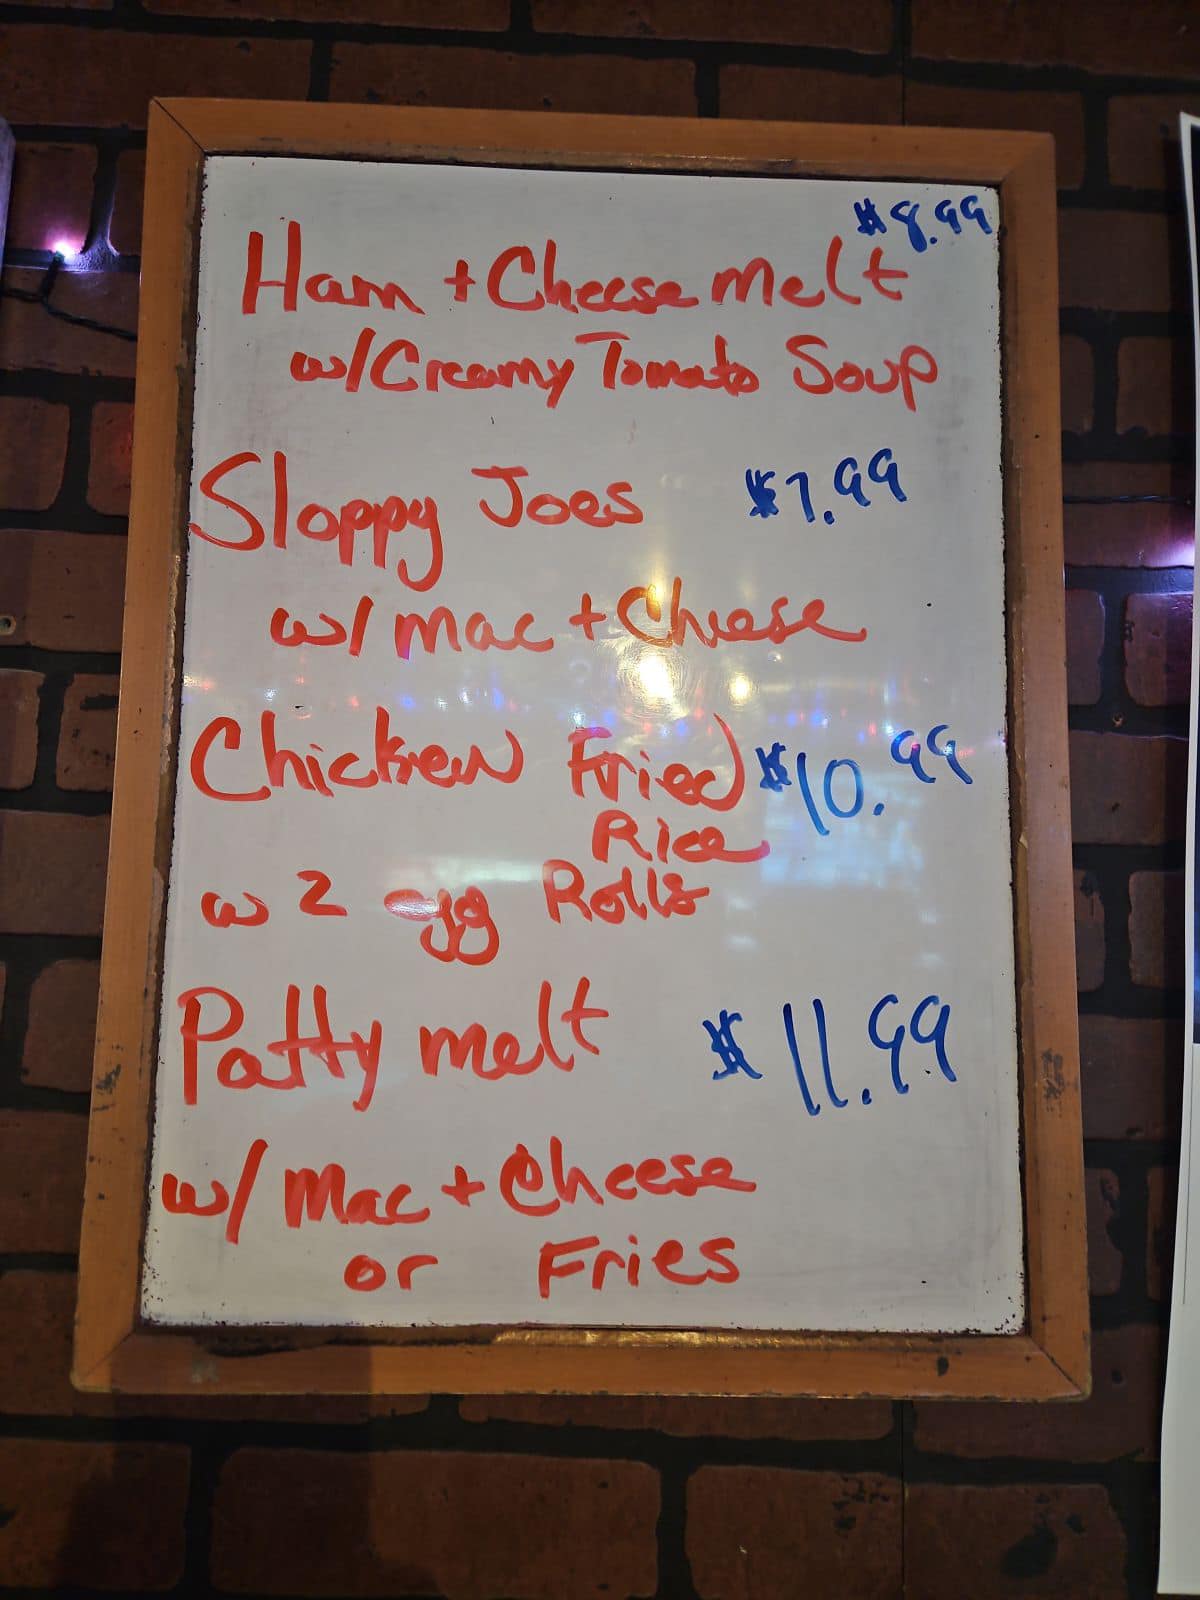 $8.99
Ham + Cheese Melt
w/Creamy Tomato Soup
Sloppy Joes $7.99
w/ Mac + Cheese
Chicken Fried $10.99
Rice
w 2 egg Rolls
Patty melt $11.99
w/ Mac + Cheese
or Fries